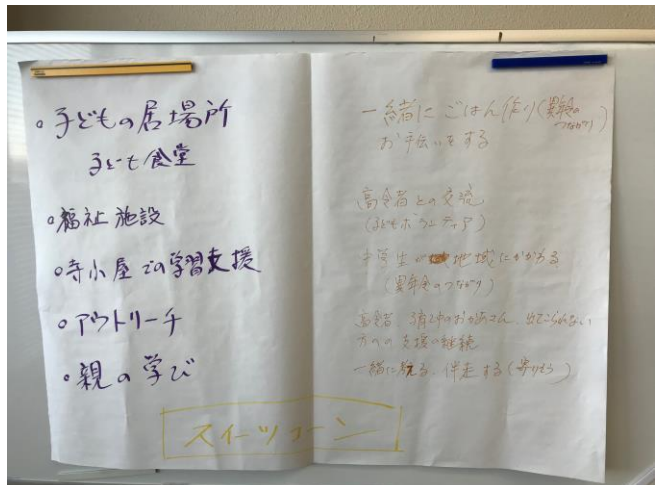 ・子どもの居場所
子ども食堂
・福祉施設
・寺小屋での学習支援
・アウトリーチ
・親の学び
一緒にごはん作り(異年令のつながり)
お手伝いをする
高令者との交流
(子どもボランティア)
中学生が地域にかかわる
(異年令のつながり)
高令者、お母さん、出てこられない
方への支援の継続
一緒に考える、伴走する(寄りそう)
スイーツコーン